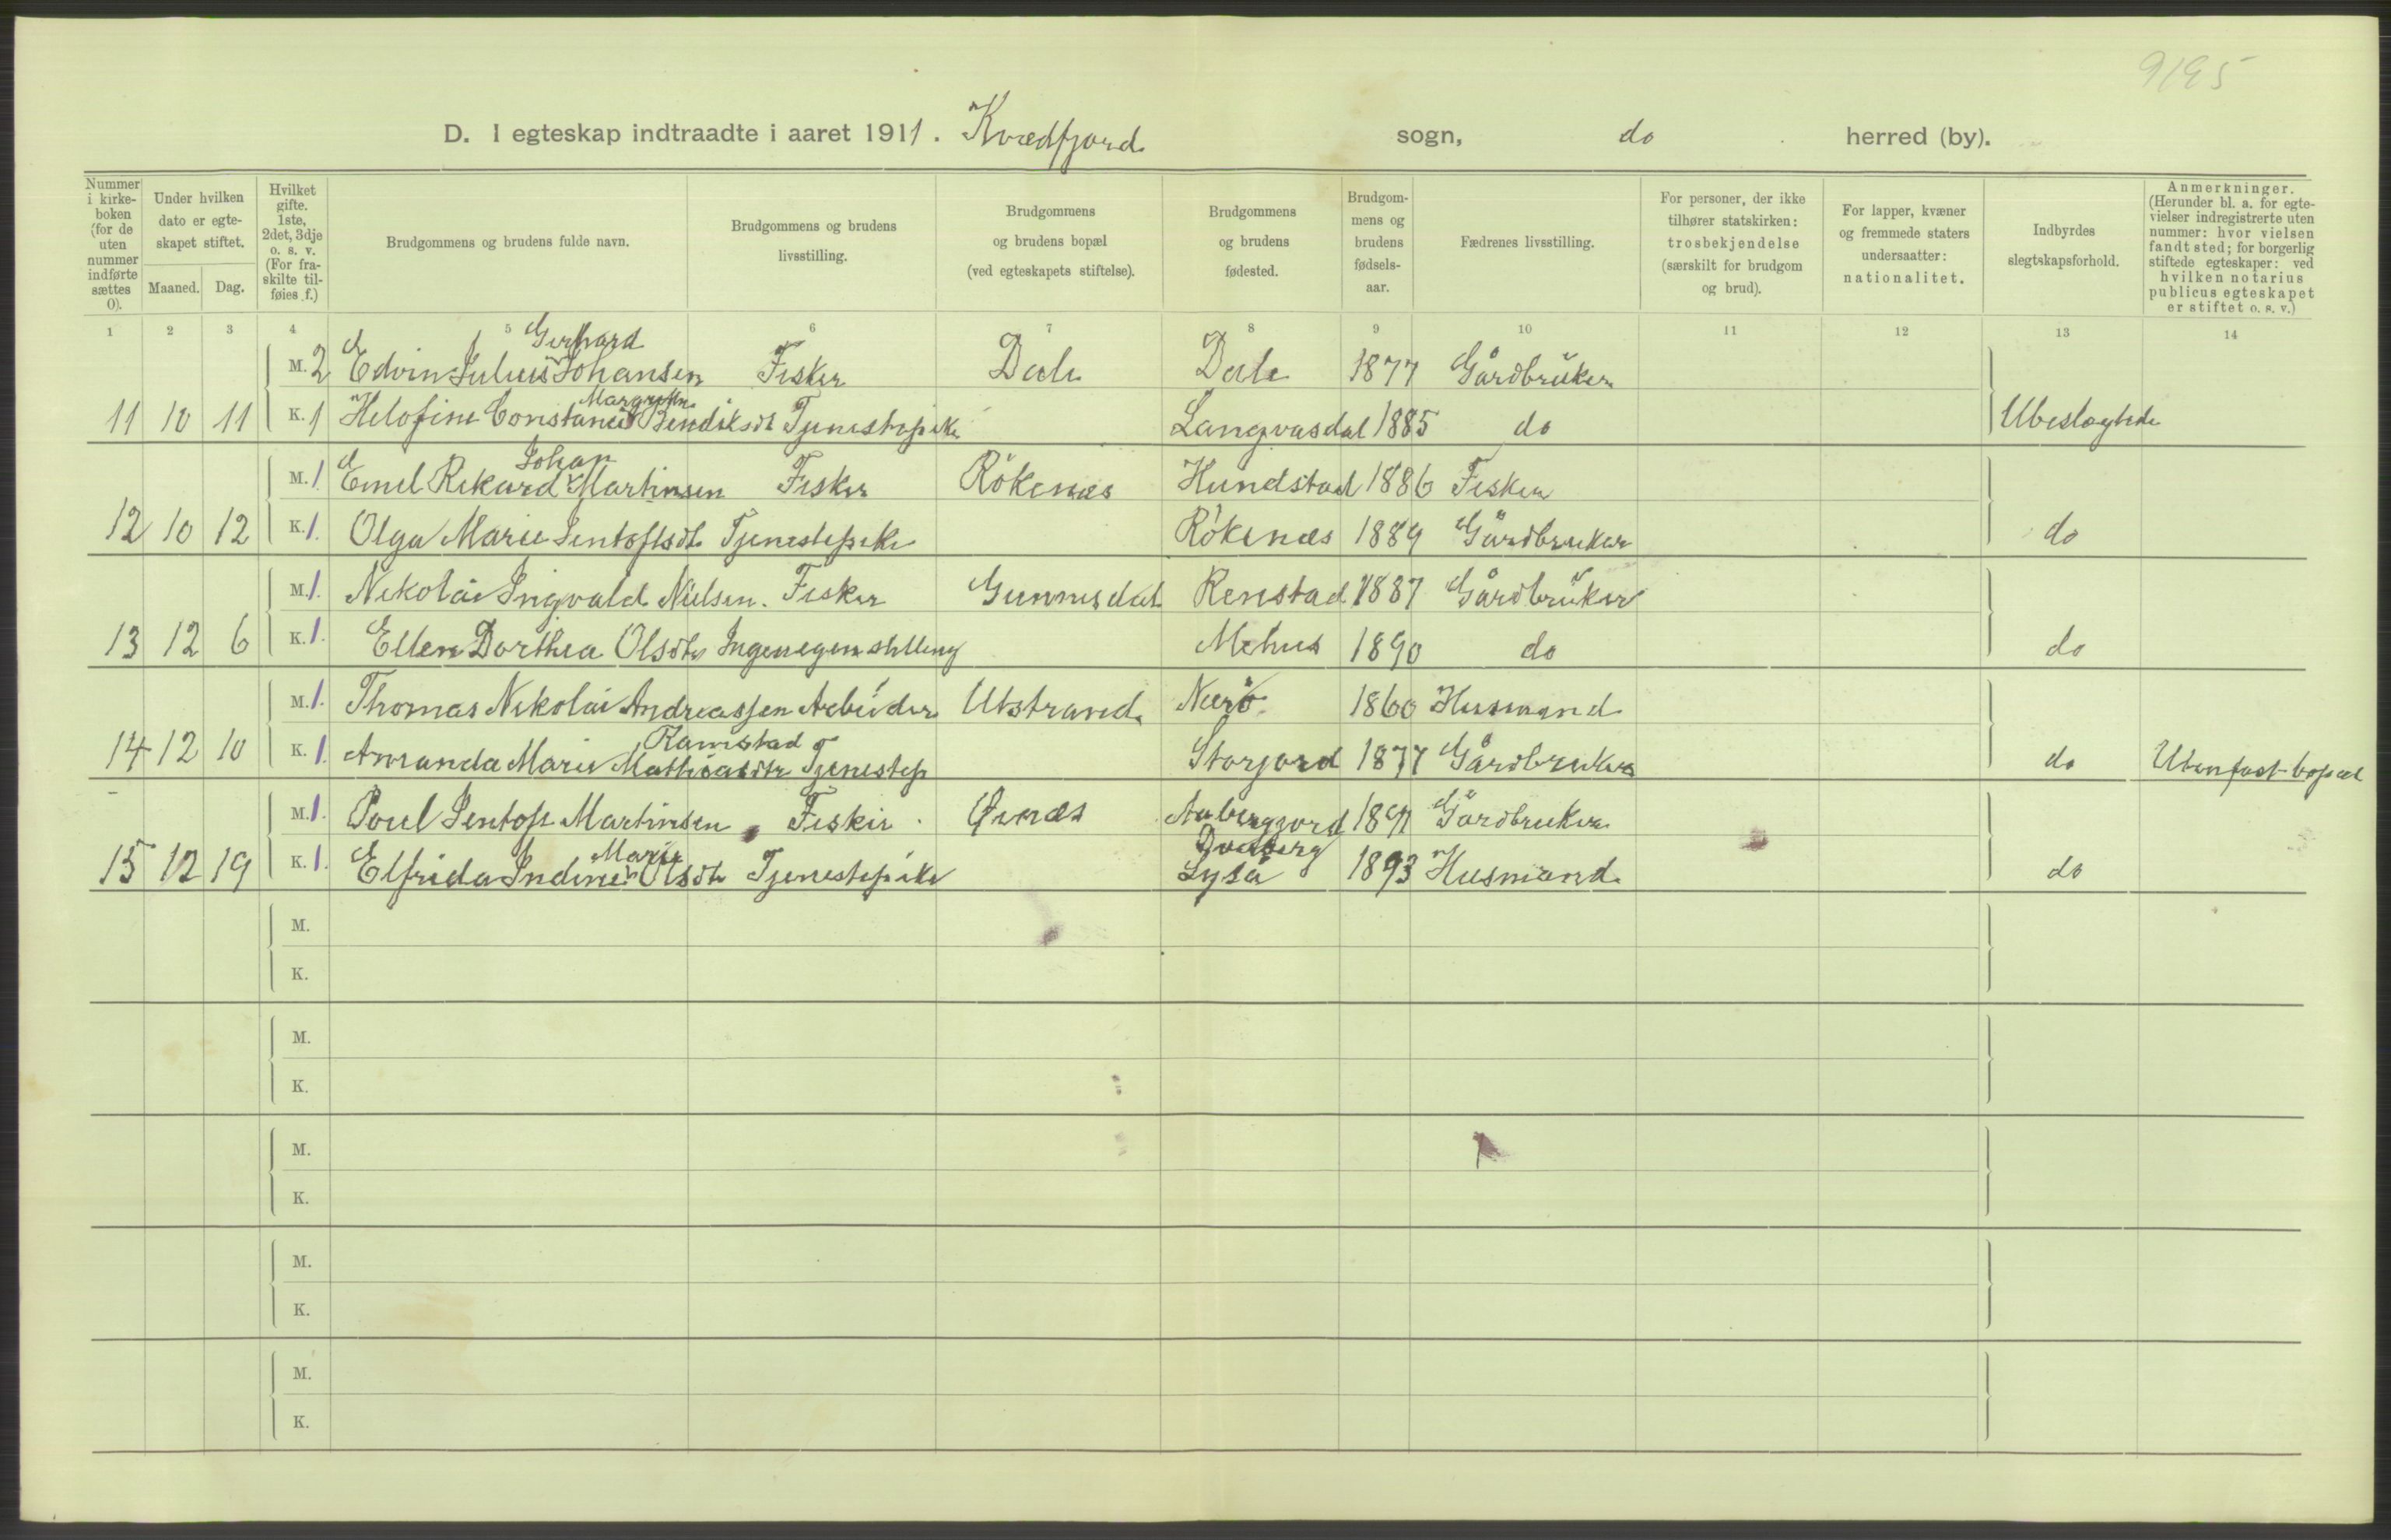 9195
D. I egteskap indtraadte i aaret 1911. Kvædfjord sogn, do herred (by).
Nummer i kirkeboken (for de uten nummer indførte sættes 0).
Under hvilken dato er egteskapet stiftet.
Maaned. Dag.
Hvilket gifte. 1ste, 2det, 3dje o. s. v. (For fraskilte tilføies f.)
Brudgommens og brudens fulde navn.
Brudgommens og brudens livsstilling.
Brudgommens og brudens bopæl (ved egteskapets stiftelse).
Brudgommens og brudens fødested.
Brudgommens og brudens fødselsaar.
Fædrenes livsstilling.
For personer, der ikke tilhører statskirken: trosbekjendelse (særskilt for brudgom og brud).
For lapper, kvæner og fremmede staters undersaatter: nationalitet.
Indbyrdes slegtskapsforhold.
Anmerkninger. (Herunder bl. a. for egtevielser indregistrerte uten nummer: hvor vielsen fandt sted; for borgerlig stiftede egteskaper: ved hvilken notarius publicus egteskapet er stiftet o. s. v.)
1 2 3 4 5 6 7 8 9 10 11 12 13 14
Gerhard
M. 2 Edvin Julius Johansen Fisker Dale Dale 1877 Gårdbruker
Margrethe
11 10 11 K. 1 Helofine Constance Bendiksdt Tjenestepike Langvasdal 1885 do Ubeslægtede
Johan
M. 1. Emil Rikard Martinsen Fisker Rökenæs Hundstad 1886 Fisker
12 10 12 K. 1. Olga Marie Sentoftsdt Tjenestepike Rökenæs 1889 Gårdbruker do
M. 1. Nikolai Ingvald Nielsen. Fisker Gunnesdal Renstad 1887 Gårdbruker
13 12 6 K. 1. Ellen Dorthea Olsdtr Ingen egen stilling Mehus 1890 do do
M. 1. Thomas Nikolai Andreassen Arbeider Utstrand Nærö 1860 Husmand
Ramstad
14 12 10 K. 1. Amanda Marie Mathiasdtr Tjenestep Storjord 1877 Gårdbruker do Uten fast bopæl
M. 1. Poul Sentop Martinsen Fisker Øknæs Aabergjord 1891 Gårdbruker
Marie
15 12 19 K. 1. Elfrida Indine Olsdt Tjenestepike Lyså 1893 Husmand do
M.
K.
M.
K.
M.
K.
M.
K.
M.
K.